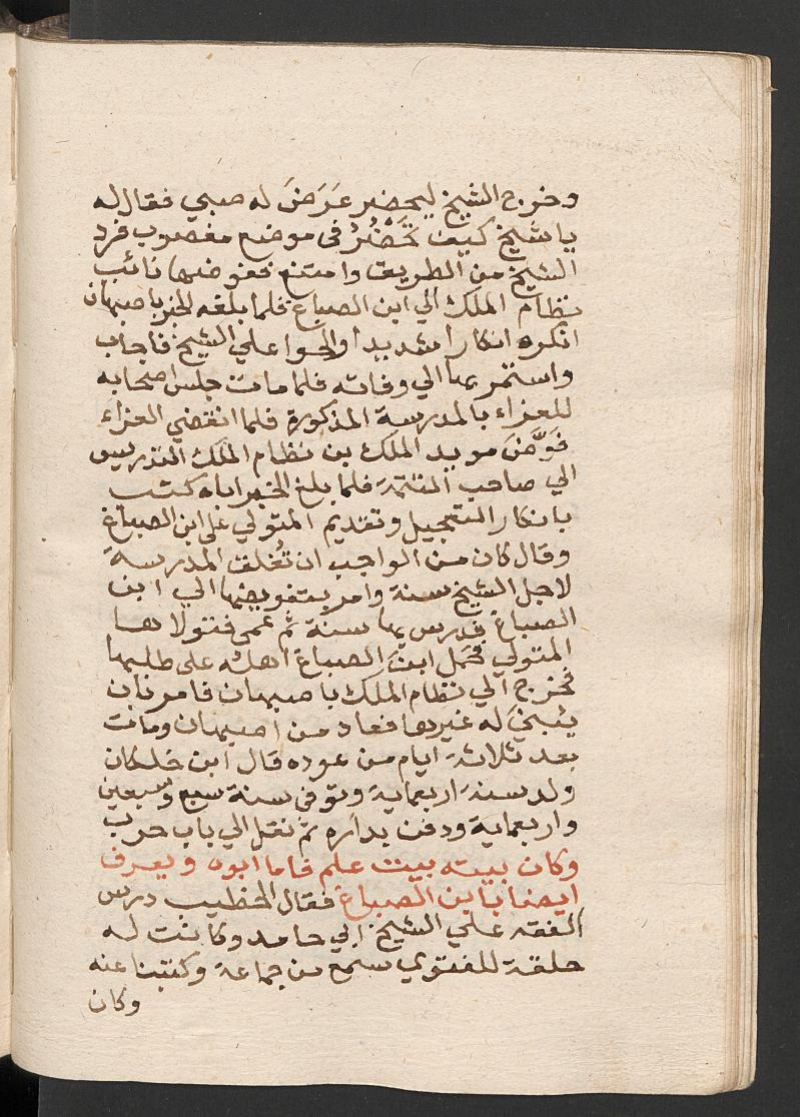 وخرج الشيخ ليحضر عَرَضَ له صبي فقال له
يا شيخ كيف تَحْضُرُ فى موضع مغصوب فرد
الشيخ من الطريق وامتنع ففوضها نائب
نظام الملك الي ابن الصباغ فلما بلغه الخبر باصبهان
انكره انكارا شديدا والحوا علي الشيخ فاجاب
واستمر بها الي وفاته فلما مات جلس اصحابه
للعزاء بالمدرسة المذكورة فلما انقضي العزاء
فَوَّضَ مويد الملك بن نظام الملك التدريس
الي صاحب التتمة فلما بلغ الخبر اباه كتب
بانكار التعجيل وتقديم المتولي على ابن الصباغ
وقال كان من الواجب ان تُغلق المدرسة
لاجل الشيخ سنة وامر بتفويضها الي ابن
الصباغ فدرس بها سنة ثم عمى فتولاها
المتولي فحمل ابن الصباغ اهله على طلبها
فخرج الي نظام الملك باصبهان فامر بان
يبني له غيرها فعاد من اصبهان ومات
بعد ثلاثة ايام من عوده قال ابن خلكان
ولد سنة اربعماية وتوفى سنة سبع وسبعين
واربعماية ودفن بداره ثم نقل الي باب حرب
وكان بيته بيت علم فاما ابوه ويعرف
ايضا بابن الصباغ فقال الخطيب درس
الفقه علي الشيخ ابي حامد وكانت له
حلقة للفتوي سمع من جماعة وكتبنا عنه
وكان